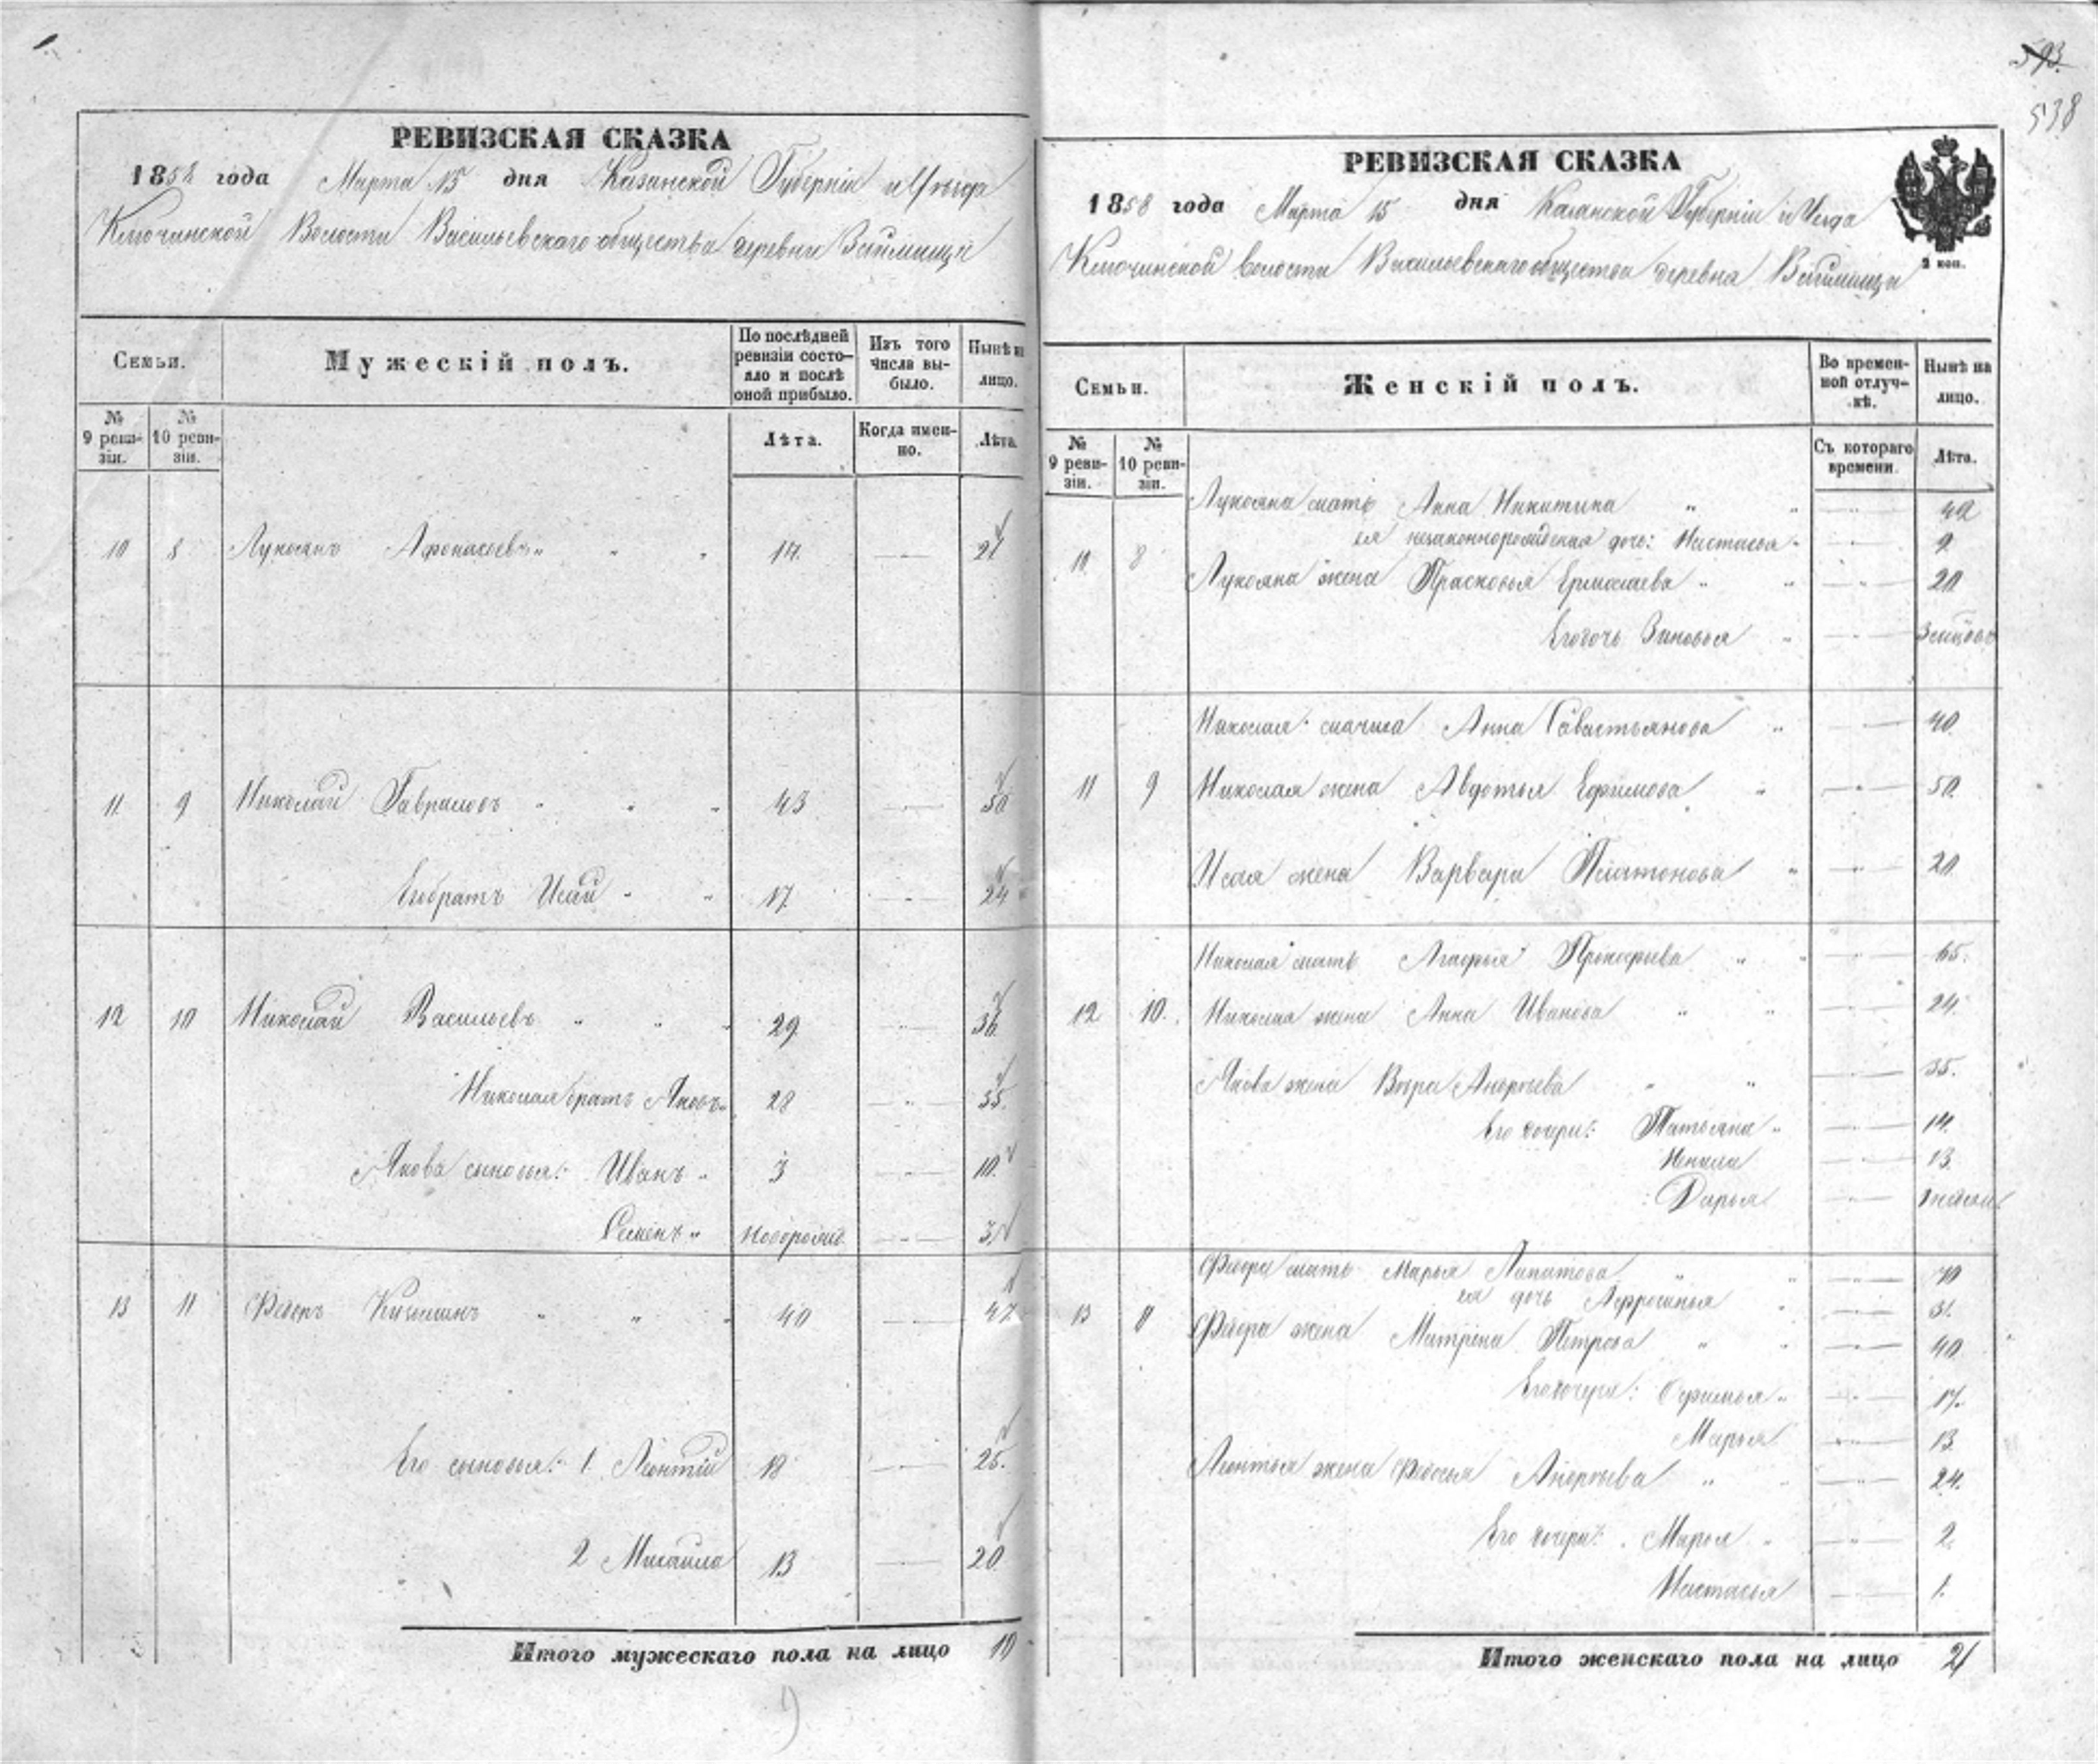 593.
538
РЕВИЗСКАЯ СКАЗКА
1858 года Марта 15 дня Казанской Губерніи и Уѣзда
Ключинской Волости Васильевскаго общества деревни Займища
Семьи.
Мужескій полъ.
По послѣдней ревизіи состояло и послѣ оной прибыло.
Изъ того числа выбыло.
Нынѣ на лицо.
№ 9 ревизіи.
№ 10 ревизіи.
Лѣта.
Когда именно.
Лѣта.
10 8 Лукоянъ Афонасьевъ " " " 14. — 21
11 9 Николай Гавриловъ " " " 43 — 50
Его братъ Исай " " 17. — 24
12 10 Николай Васильевъ " " " 29 — 36
Николая братъ Яковъ " 28 — 35.
Якова сыновья: Иванъ " 3 — 10.
Семенъ " новорожд. — 3
13 11 Федоръ Кизминъ " " " 40 — 47
Его сыновья: 1. Леонтій 18 — 25.
2 Михаила 13 — 20
Итого мужескаго пола на лицо 10
РЕВИЗСКАЯ СКАЗКА
1858 года Марта 15 дня Казанской Губерніи и Уѣзда
Ключинской волости Васильевскаго общества деревни Займищи
2 коп.
Семьи.
Женскій полъ.
Во временной отлучкѣ.
Нынѣ на лицо.
№ 9 ревизіи.
№ 10 ревизіи.
Съ котораго времени.
Лѣта.
Лукояна мать Анна Никитина " " — 42
ея незаконнорожденная дочь: Настасья " — 9
10 8 Лукояна жена Прасковья Ермолаева " " — 20
Его дочь Зиновья " —
Николая мачиха Анна Савастьянова " — 40
11 9 Николая жена Авдотья Ефимова " — 50.
Исая жена Варвара Платонова " — 20
Николая мать Агафья Прокофьева " " — 65.
12 10. Николая жена Анна Иванова " " — 24.
Якова жена Вѣра Андрѣева " " — 35.
Его дочери: Татьяна " — 14.
Ненила — 13.
Дарья —
Федора мать Марья Липатова " " — 70
ея дочь Афросинья " — 31.
13 11 Федора жена Матрена Петрова " " — 40
Его дочери: Офимья " — 17.
Марья — 13.
Леонтья жена Федосья Андрѣева " " — 24.
Его дочери: Марья " — 2.
Настасья — 1.
Итого женскаго пола на лицо 21